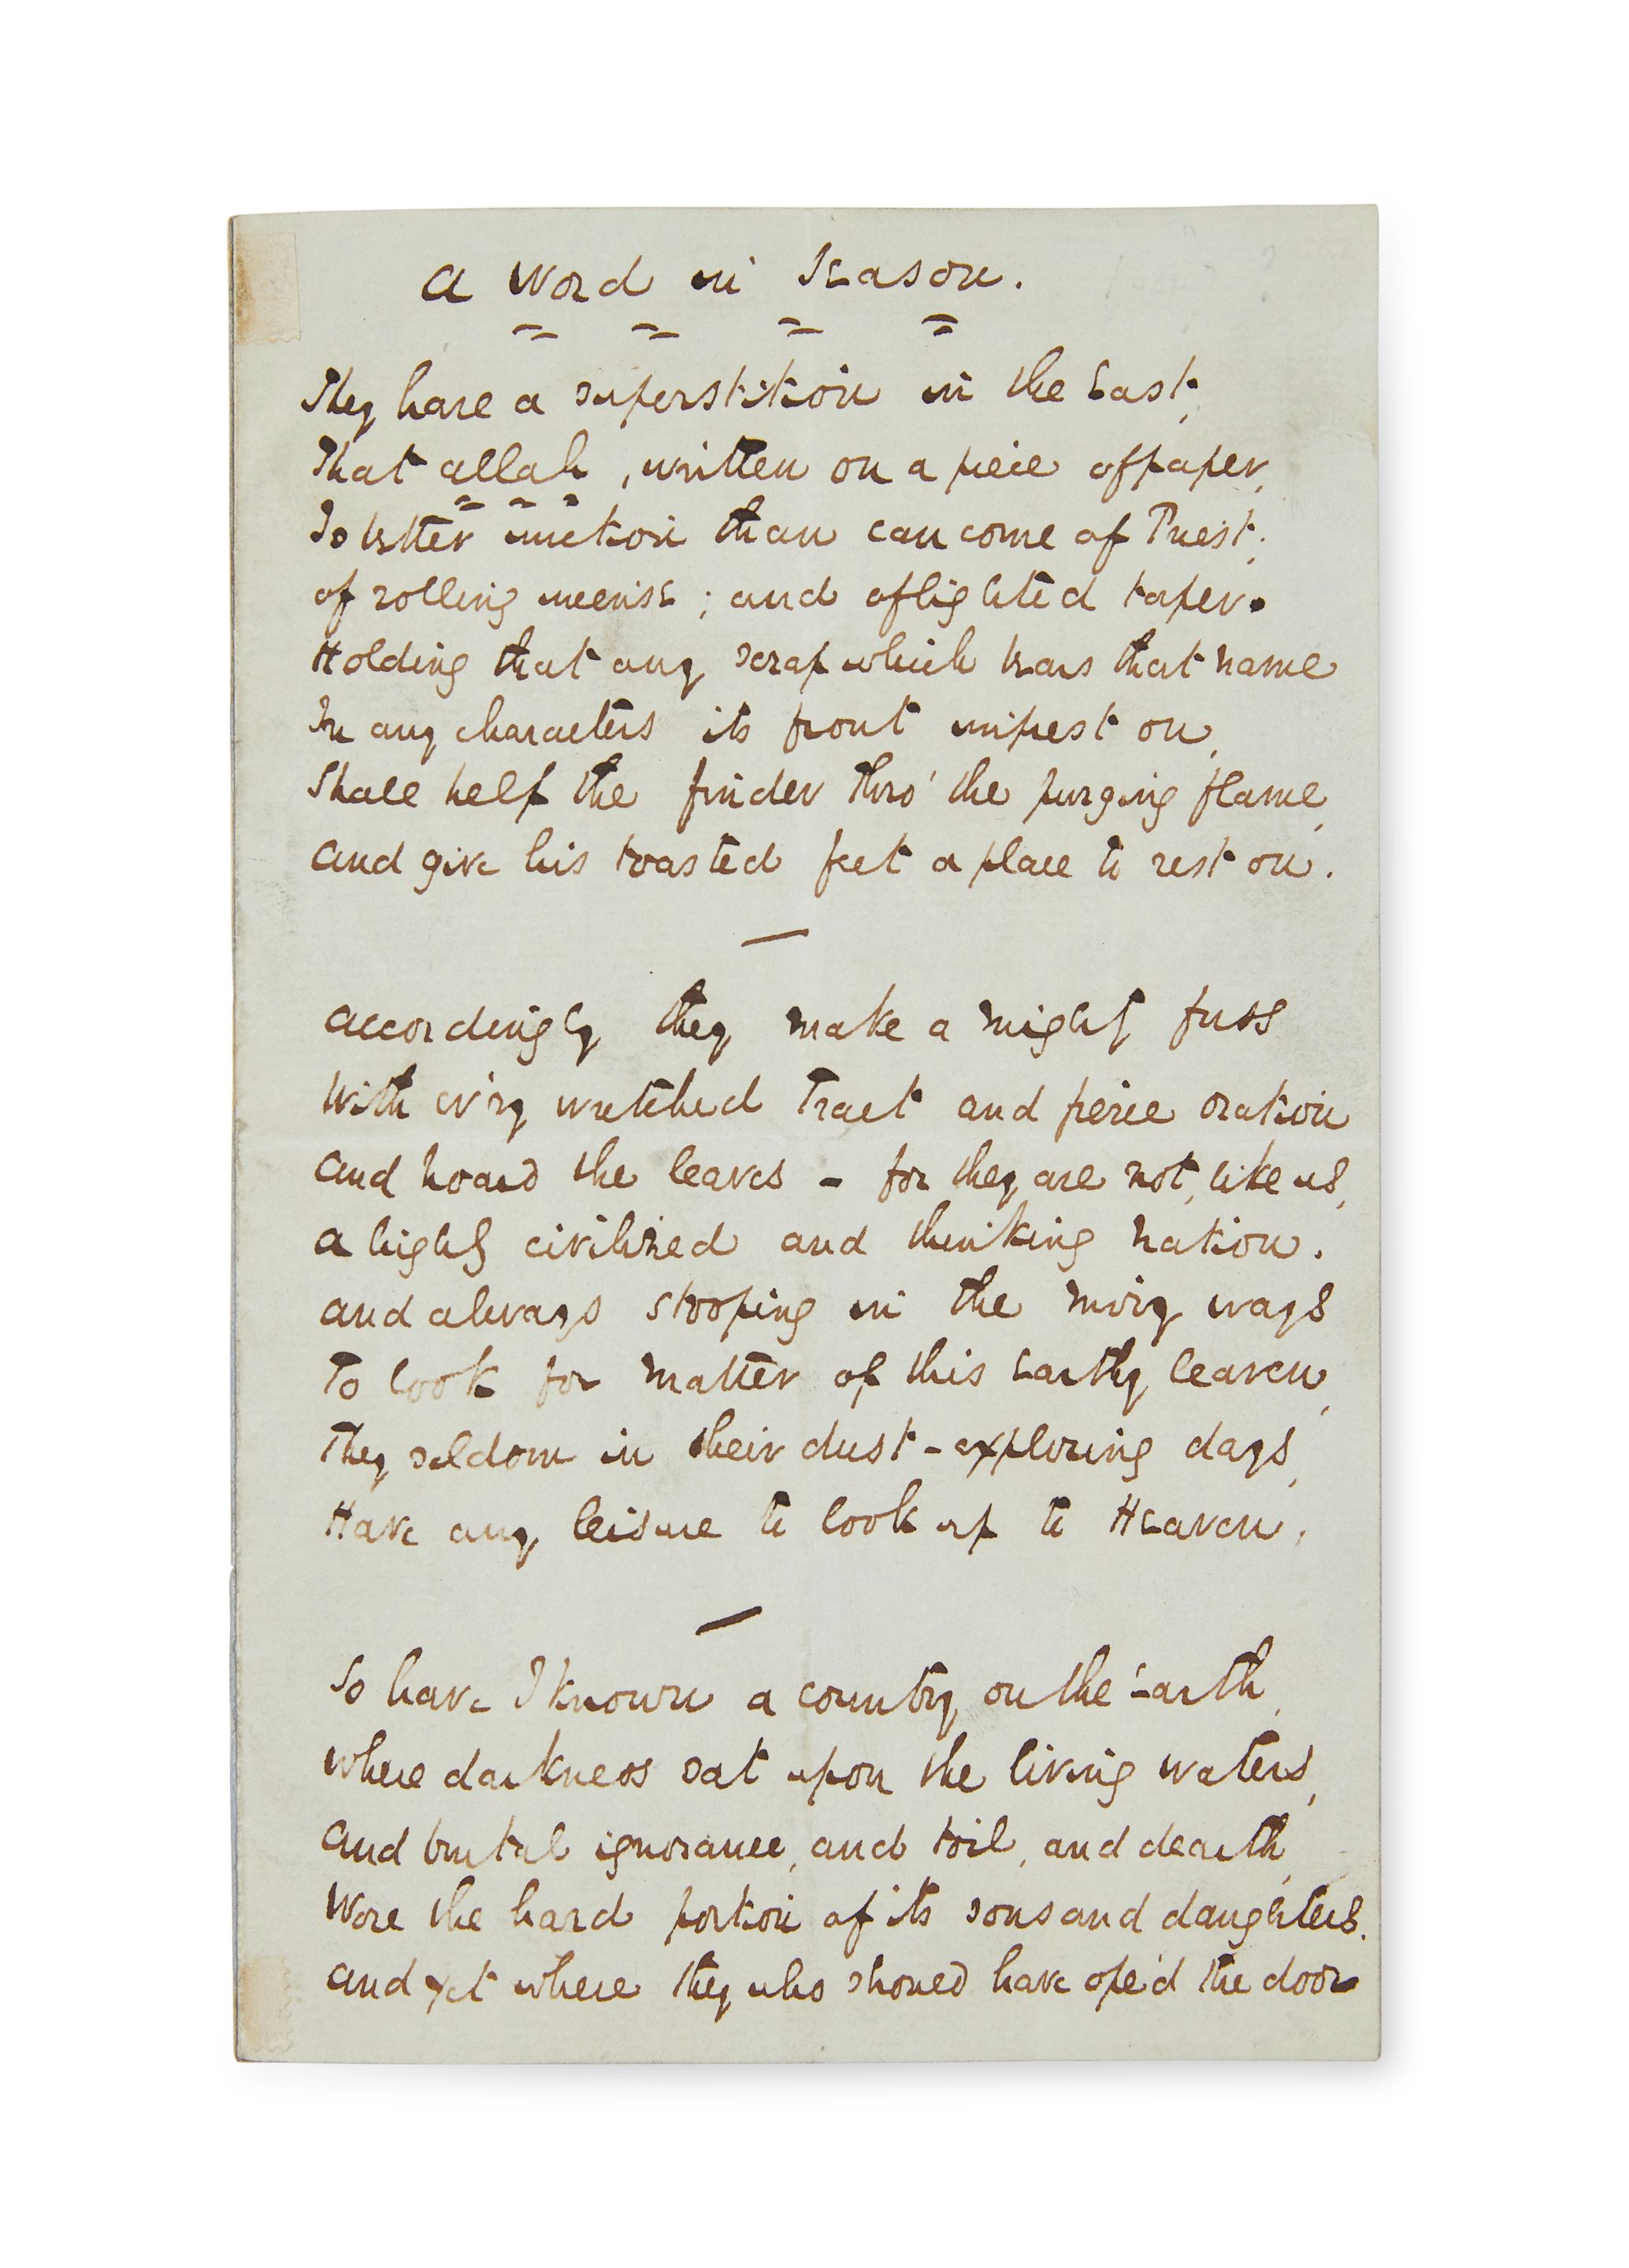 A Word in Season.
They have a superstition in the East,
That Allah, written on a piece of paper,
Is better unction than can come of Priest,
Of rolling incense; and of lighted taper.
Holding that any scrap which bears that name
In any characters its front imprest on,
Shall help the finder thro' the purging flame,
And give his toasted feet a place to rest on.
Accordingly they make a mighty fuss
With ev'ry wretched Tract and fierce oration
And hoard the leaves - for they are not, like us,
A highly civilized and thinking nation.
And always stooping in the miry ways
To look for matter of this earthy leaven,
They seldom in their dust-exploring days,
Have any leisure to look up to Heaven.
So have I known a country on the Earth,
Where darkness sat upon the living waters,
And brutal ignorance, and toil, and dearth,
Were the hard portion of its sons and daughters.
And yet where they who should have ope'd the door